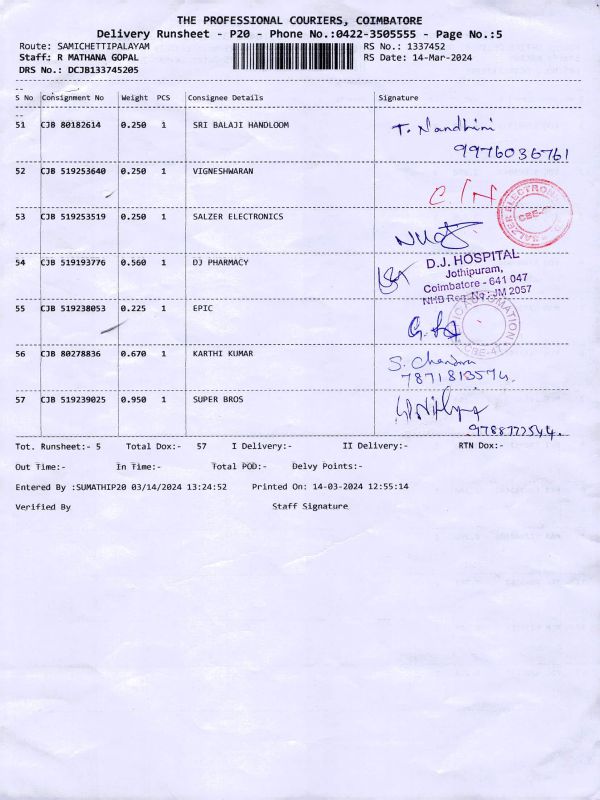 THE PROFESSIONAL COURIERS, COIMBATORE
Delivery Runsheet - P20 - Phone No.:0422-3505555 - Page No.:5
Route: SAMICHETTIPALAYAM RS No.: 1337452
Staff: R MATHANA GOPAL RS Date: 14-Mar-2024
DRS No.: DCJB133745205
S No Consignment No Weight PCS Consignee Details Signature
51 CJB 80182614 0.250 1 SRI BALAJI HANDLOOM T. Nandhini
9976036761
52 CJB 519253640 0.250 1 VIGNESHWARAN
53 CJB 519253519 0.250 1 SALZER ELECTRONICS
SALZER ELECTRONICS
54 CJB 519193776 0.560 1 DJ PHARMACY
D.J. HOSPITAL
Jothipuram,
Coimbatore - 641 047
NHB Reg. No : JM 2057
55 CJB 519238053 0.225 1 EPIC
56 CJB 80278836 0.670 1 KARTHI KUMAR S. Chandra
7871813574.
57 CJB 519239025 0.950 1 SUPER BROS
9788777544.
Tot. Runsheet:- 5 Total Dox:- 57 I Delivery:- II Delivery:- RTN Dox:-
Out Time:- In Time:- Total POD:- Delvy Points:-
Entered By :SUMATHIP20 03/14/2024 13:24:52 Printed On: 14-03-2024 12:55:14
Verified By Staff Signature